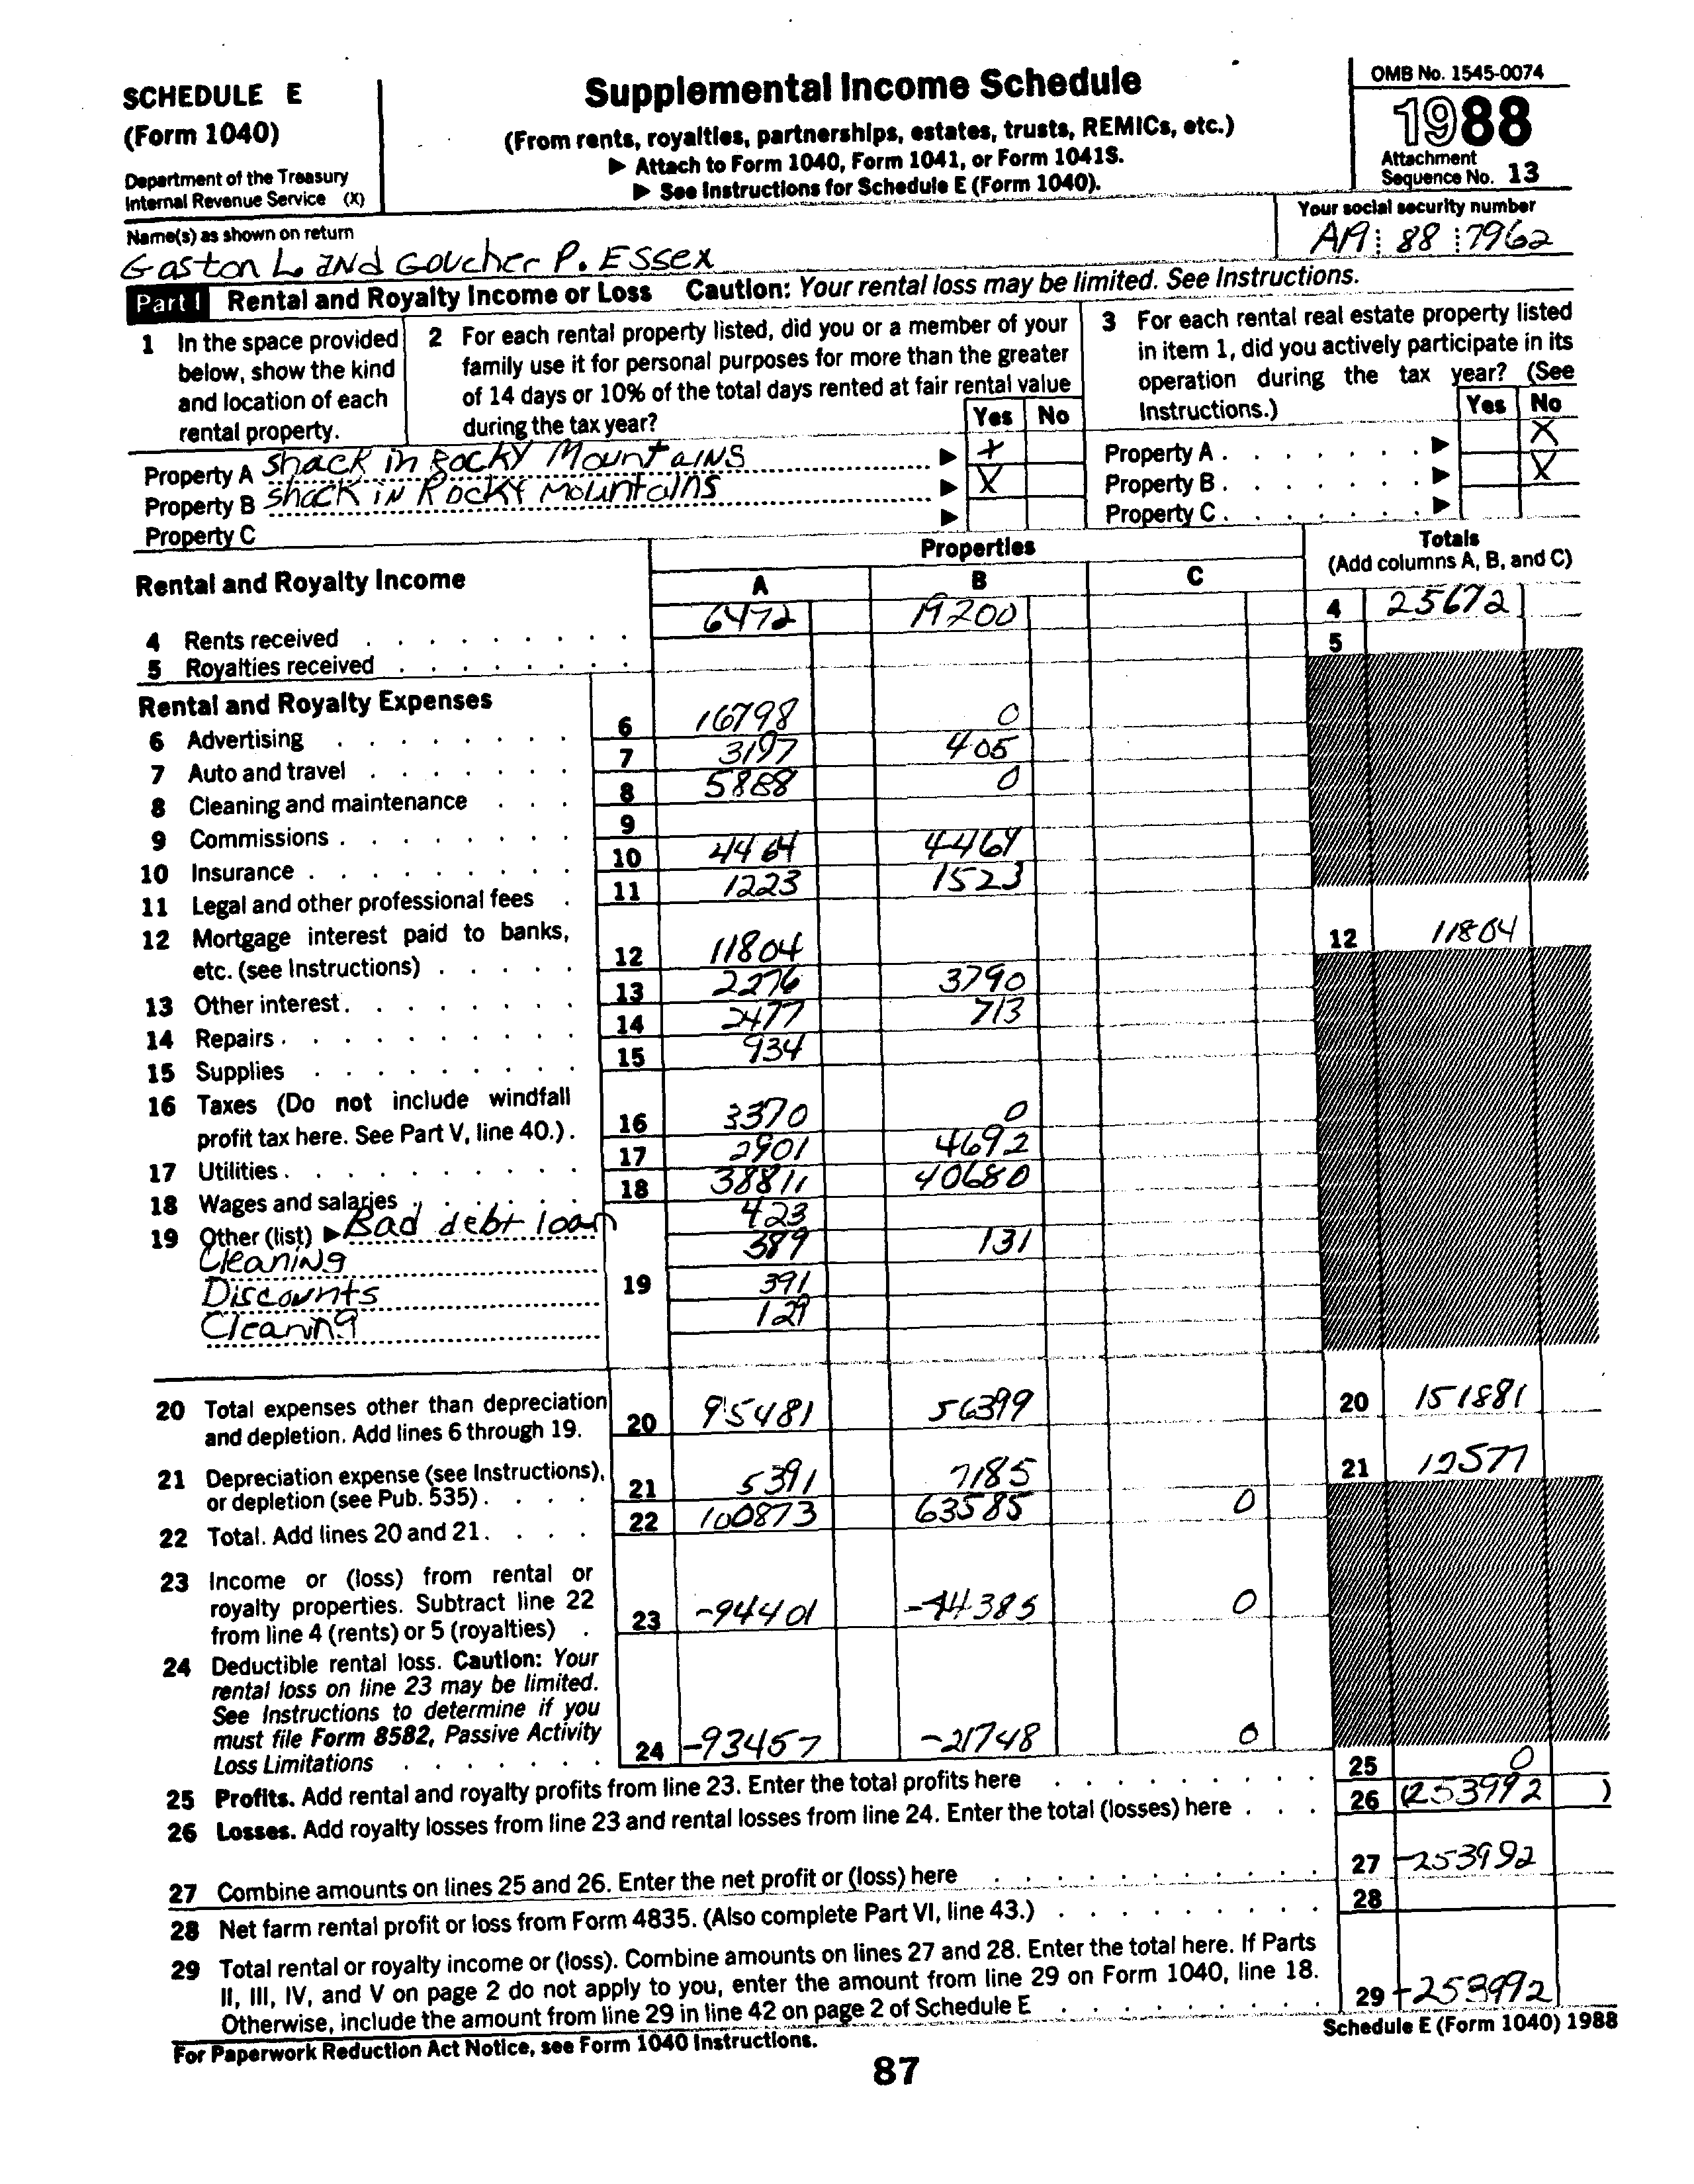 SCHEDULE E
(Form 1040)
Department of the Treasury
Internal Revenue Service (X)
Supplemental Income Schedule
(From rents, royalties, partnerships, estates, trusts, REMICs, etc.)
▶ Attach to Form 1040, Form 1041, or Form 1041S.
▶ See Instructions for Schedule E (Form 1040).
OMB No. 1545-0074
1988
Attachment
Sequence No. 13
Name(s) as shown on return
Gaston L. and Goucher P. Essex
Your social security number
88 7962
Part I Rental and Royalty Income or Loss Caution: Your rental loss may be limited. See Instructions.
1 In the space provided below, show the kind and location of each rental property.
2 For each rental property listed, did you or a member of your family use it for personal purposes for more than the greater of 14 days or 10% of the total days rented at fair rental value during the tax year?
Yes No
3 For each rental real estate property listed in item 1, did you actively participate in its operation during the tax year? (See Instructions.)
Yes No
Property A shack in Rocky Mountains ▶ X Property A ▶ X
Property B shack in Rocky Mountains ▶ X Property B ▶ X
Property C ▶ Property C ▶
Rental and Royalty Income
Properties
A B C
Totals
(Add columns A, B, and C)
4 Rents received 6472 19200 4 25672
5 Royalties received 5
Rental and Royalty Expenses
6 Advertising 6 16798 0
7 Auto and travel 7 3197 405
8 Cleaning and maintenance 8 5888 0
9 Commissions 9
10 Insurance 10 4464 4464
11 Legal and other professional fees 11 1223 1523
12 Mortgage interest paid to banks, etc. (see Instructions) 12 11804 12 11804
13 Other interest 13 2276 3790
14 Repairs 14 2477 713
15 Supplies 15 934
16 Taxes (Do not include windfall profit tax here. See Part V, line 40.) 16 3370 0
17 Utilities 17 2901 4692
18 Wages and salaries 18 38811 40680
19 Other (list) ▶ Bad debt loan 423
Cleaning 389 131
Discounts 19 391
Cleaning 129
20 Total expenses other than depreciation and depletion. Add lines 6 through 19. 20 95481 56399 20 151881
21 Depreciation expense (see Instructions), or depletion (see Pub. 535) 21 5391 7185 21 12577
22 Total. Add lines 20 and 21. 22 100873 63585 0
23 Income or (loss) from rental or royalty properties. Subtract line 22 from line 4 (rents) or 5 (royalties) 23 -94401 -44385 0
24 Deductible rental loss. Caution: Your rental loss on line 23 may be limited. See Instructions to determine if you must file Form 8582, Passive Activity Loss Limitations 24 -93457 -21748 0
25 Profits. Add rental and royalty profits from line 23. Enter the total profits here 25 0
26 Losses. Add royalty losses from line 23 and rental losses from line 24. Enter the total (losses) here 26 (253992)
27 Combine amounts on lines 25 and 26. Enter the net profit or (loss) here 27 -253992
28 Net farm rental profit or loss from Form 4835. (Also complete Part VI, line 43.) 28
29 Total rental or royalty income or (loss). Combine amounts on lines 27 and 28. Enter the total here. If Parts
II, III, IV, and V on page 2 do not apply to you, enter the amount from line 29 on Form 1040, line 18.
Otherwise, include the amount from line 29 in line 42 on page 2 of Schedule E 29 -253992
For Paperwork Reduction Act Notice, see Form 1040 Instructions.
Schedule E (Form 1040) 1988
87